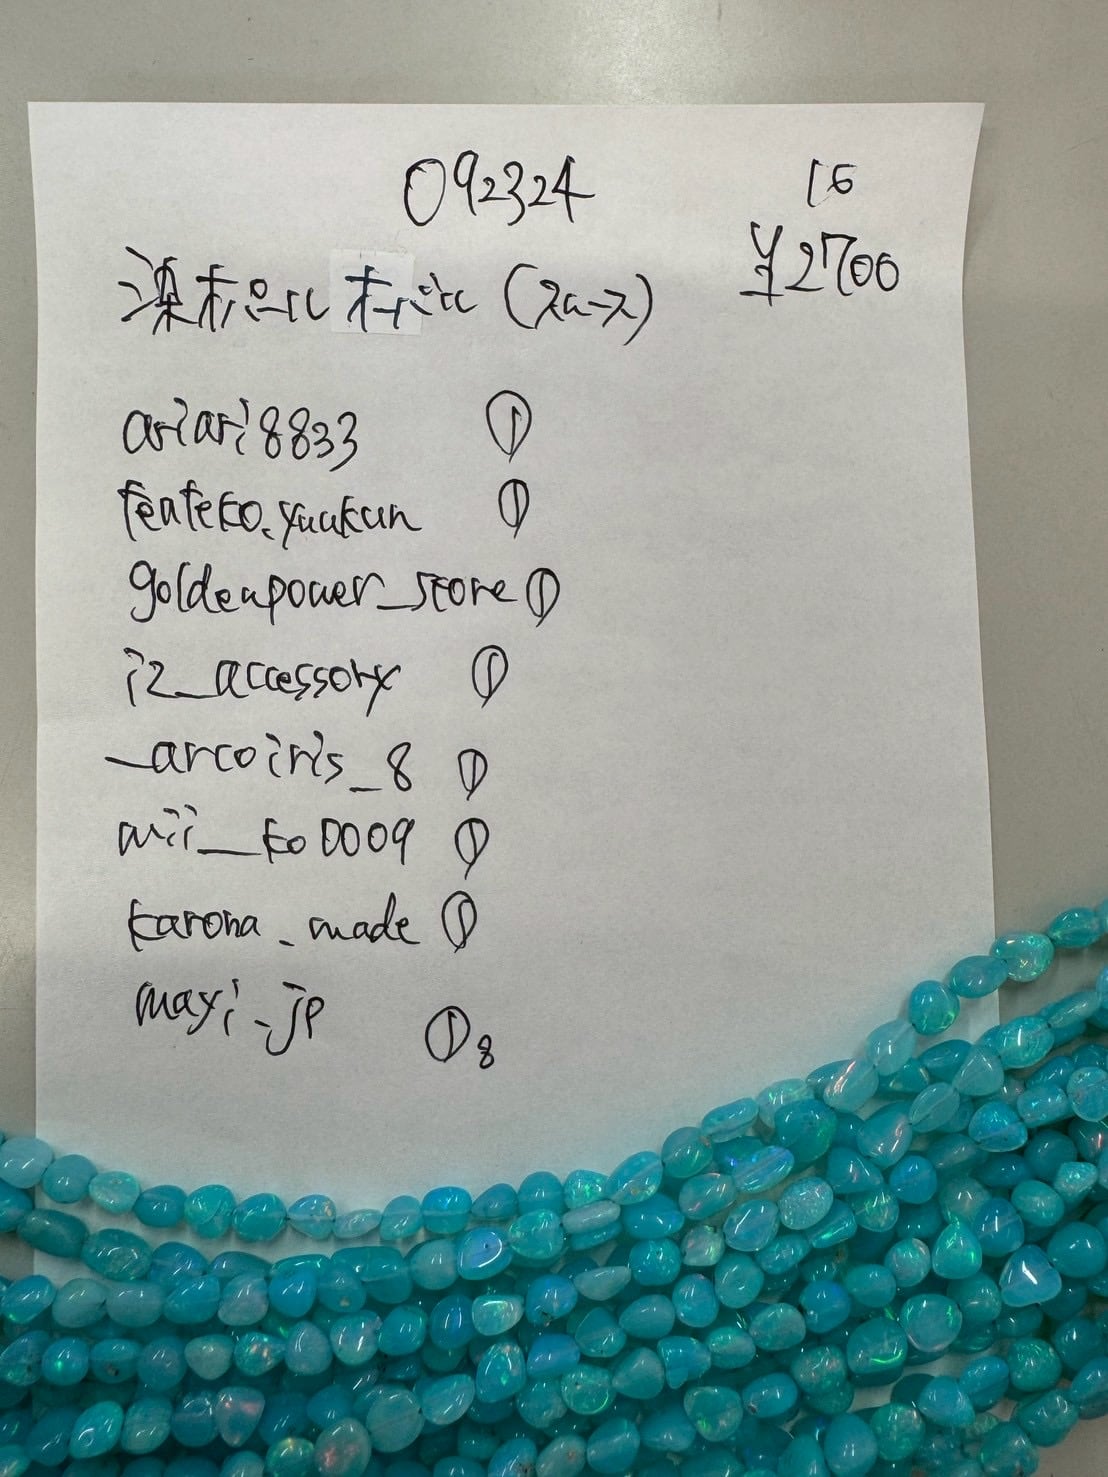 092324
16
¥2700
染オパール オパール (スムース)
ariari8833 ①
teateko.yuukun ①
goldenpower_store ①
iz_accessory ①
_arcoiris_8 ①
mii_ko0009 ①
karona_made ①
mayi_jp ① 8